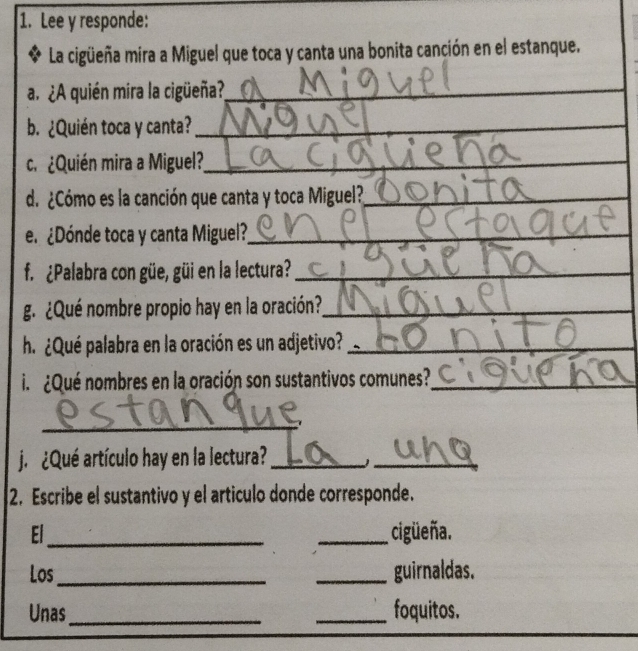 1. Lee y responde:
❖ La cigüeña mira a Miguel que toca y canta una bonita canción en el estanque.
a. ¿A quién mira la cigüeña? a Miguel
b. ¿Quién toca y canta? Miguel
c. ¿Quién mira a Miguel? La cigueña
d. ¿Cómo es la canción que canta y toca Miguel? bonita
e. ¿Dónde toca y canta Miguel? en el estaque
f. ¿Palabra con güe, güi en la lectura? cigüeña
g. ¿Qué nombre propio hay en la oración? Miguel
h. ¿Qué palabra en la oración es un adjetivo? bonito
i. ¿Qué nombres en la oración son sustantivos comunes? cigüeña
estanque.
j. ¿Qué artículo hay en la lectura? La, una
2. Escribe el sustantivo y el articulo donde corresponde.
El ____________ ______ cigüeña.
Los ____________ ______ guirnaldas.
Unas ____________ ______ foquitos.